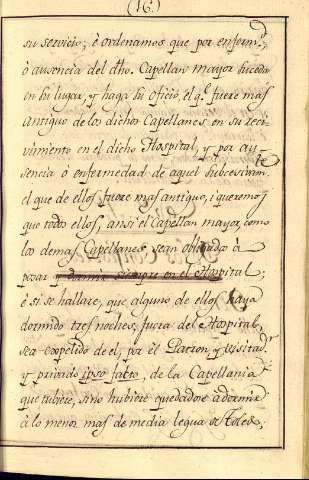 (16.)
su servicio; é ordenamos que por enferm.d
ó ausencia del dho. Capellan mayor suceda
en su lugar, y haga su oficio, el q.e fuere mas
antiguo de los dichos Capellanes en su reci
vimiento en el dicho Hospital, y por au
sencia ó enfermedad de aquel subcesivam.te
el que de ellos fuere mas antiguo, i queremos
que todo ellos, ansi el Capellan mayor, como
los demas Capellanes sean obligados á
posar y dormir siempre en el Hospital;
é si se hallare, que alguno de ellos haya
dormido tres noches, fuera del Hospital,
sea expelido de el, por el Patron, y Visitad.r
y privado ipso facto, de la Capellania
que tubiere, sino hubiere quedadose á dormir
á lo menor mas de media legua de Toledo;